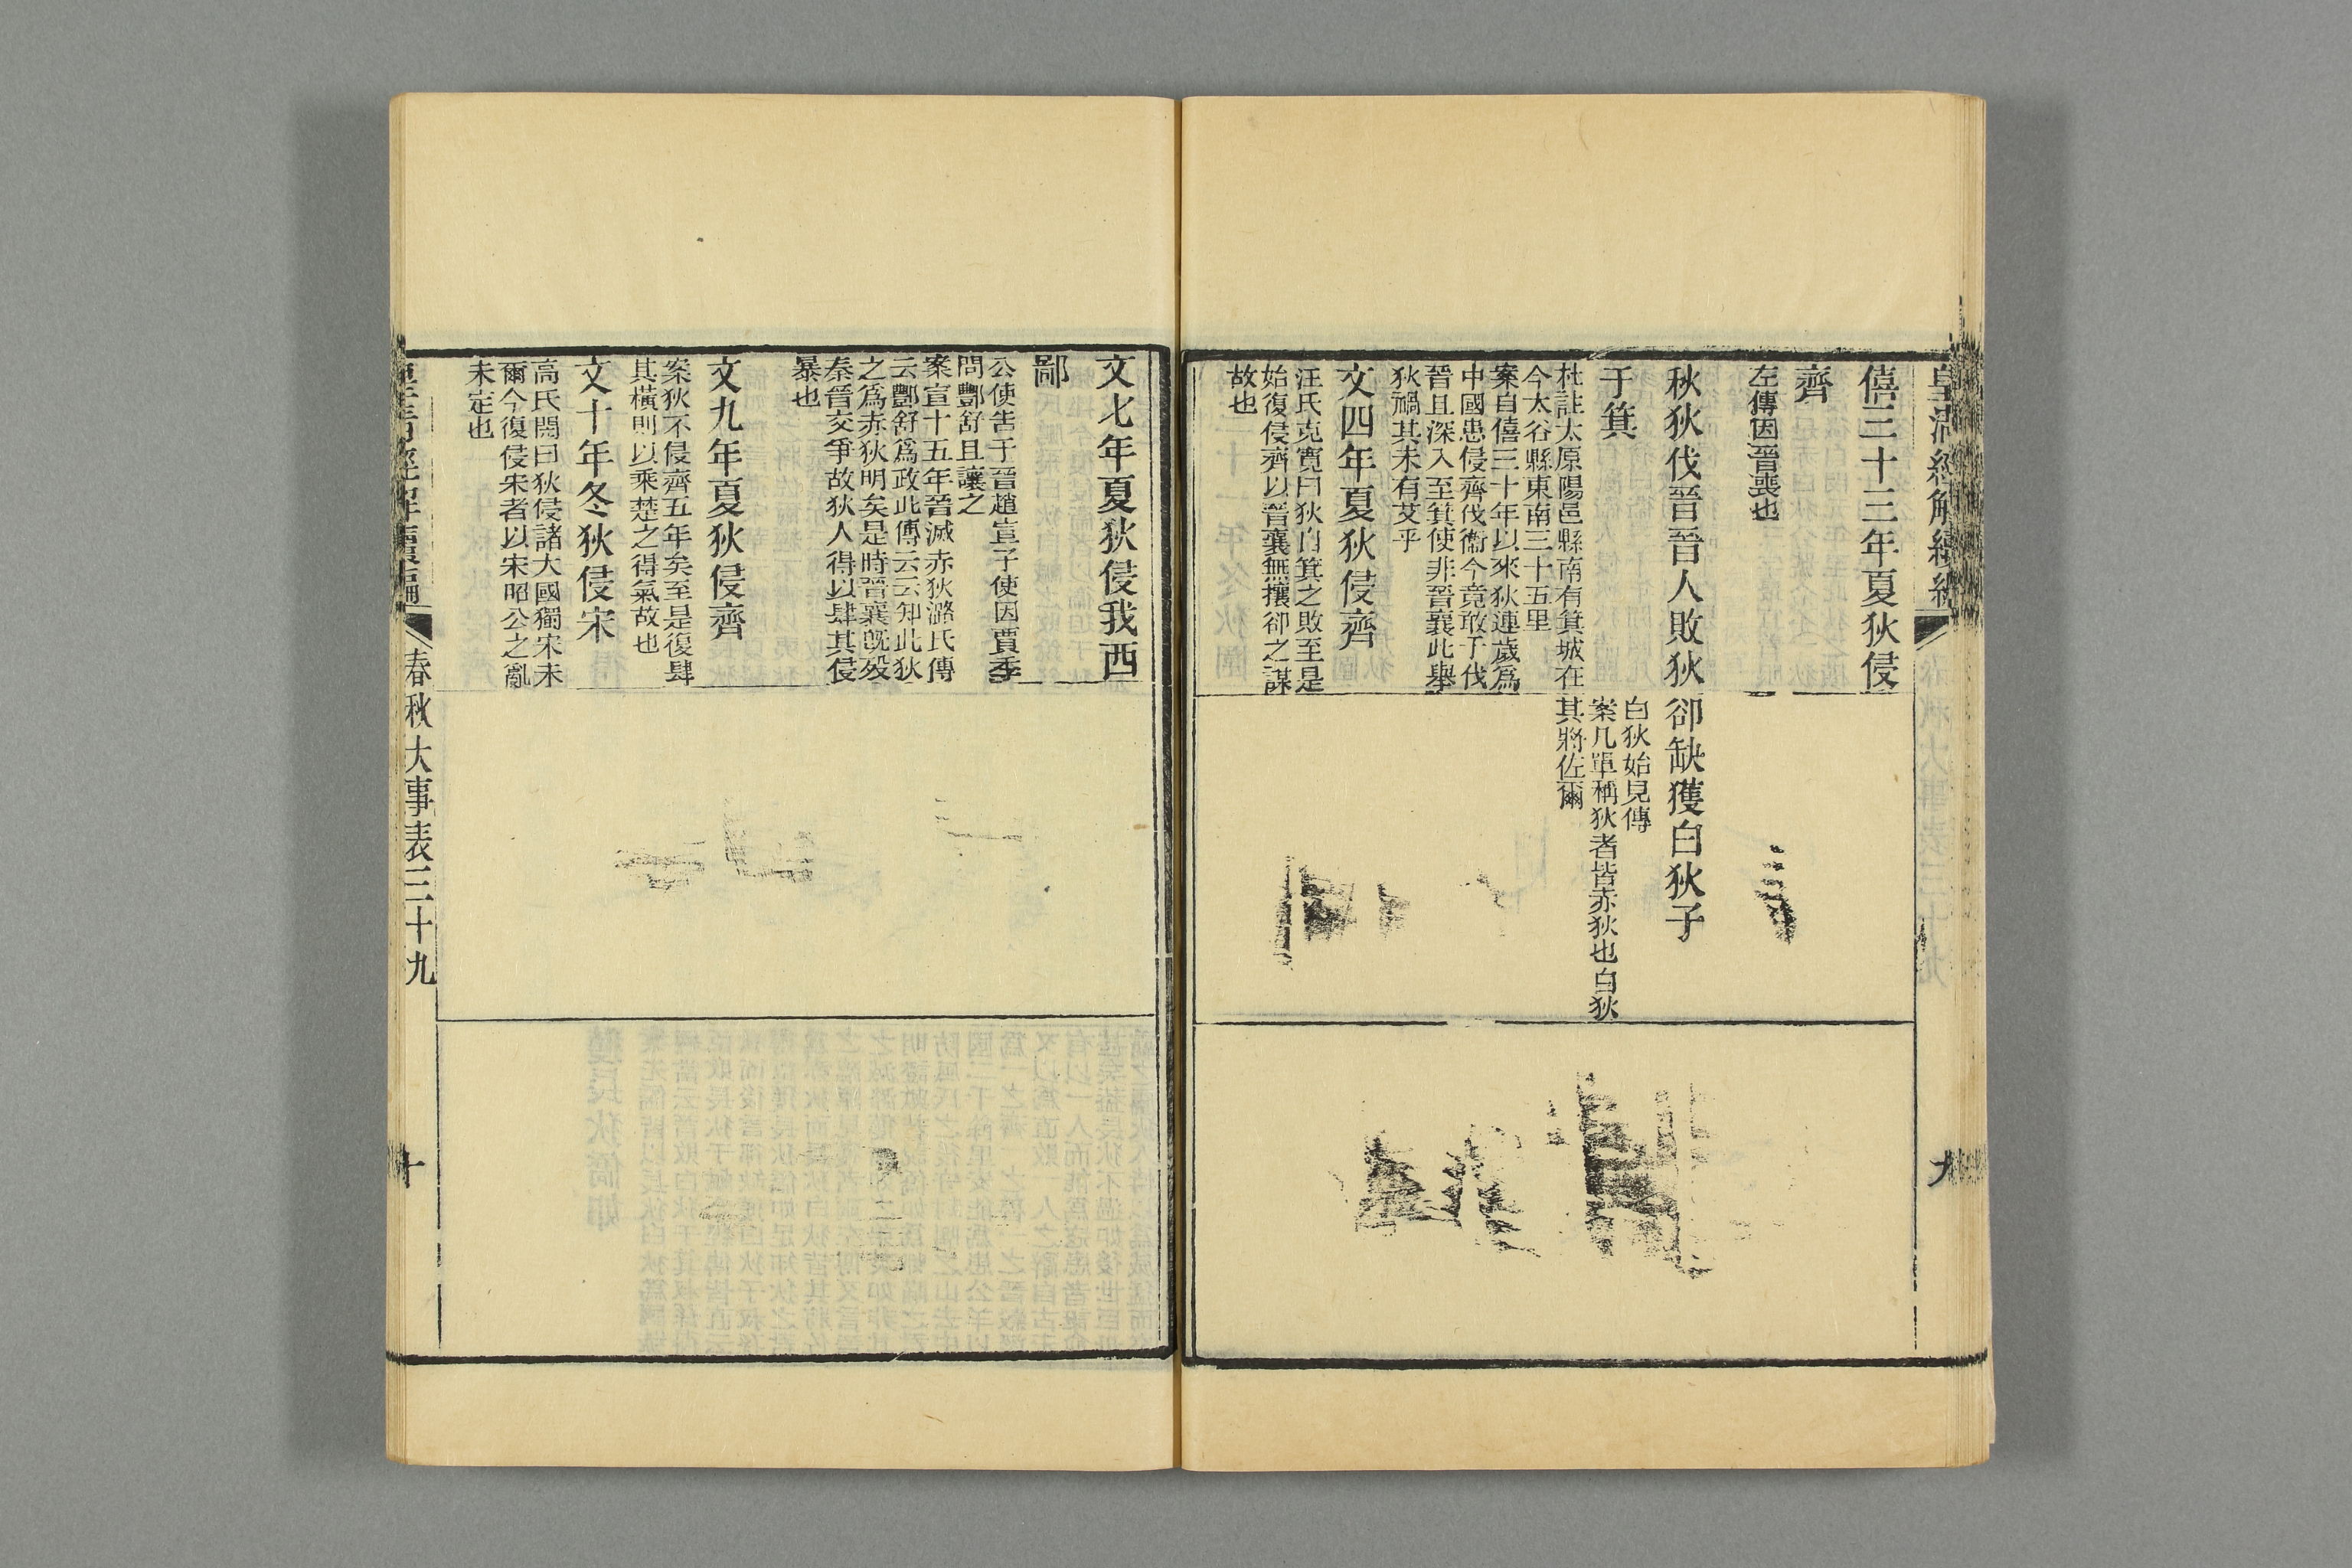 僖三十三年夏狄侵
齊
左傳因晉喪也
秋狄伐晉晉人敗狄
于箕
杜註太原陽邑縣南有箕城在
今太谷縣東南三十五里
案自僖三十年以來狄連歲爲
中國患侵齊伐衞今竟敢于伐
晉且深入至箕使非晉襄此舉
狄禍其未有艾乎
文四年夏狄侵齊
汪氏克寬曰狄自箕之敗至是
始復侵齊以晉襄無攘卻之謀
故也
卻缺獲白狄子
白狄始見傳
案凡單稱狄者皆赤狄也白狄
其將佐爾
文七年夏狄侵我西
鄙
公使告于晉趙宣子使因賈季
問酆舒且讓之
案宣十五年晉滅赤狄潞氏傳
云酆舒爲政此傳云云知此狄
之爲赤狄明矣是時晉襄旣歿
秦晉交爭故狄人得以肆其侵
暴也
文九年夏狄侵齊
案狄不侵齊五年矣至是復肆
其橫則以乘楚之得氣故也
文十年冬狄侵宋
高氏閌曰狄侵諸大國獨宋未
爾今復侵宋者以宋昭公之亂
未定也
春秋大事表三十九
十